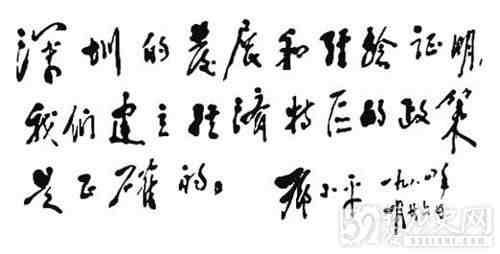 深圳的发展和经验证明,
我们建立经济特区的政策
是正确的。 邓小平 一九八四年
一月廿六日
史网